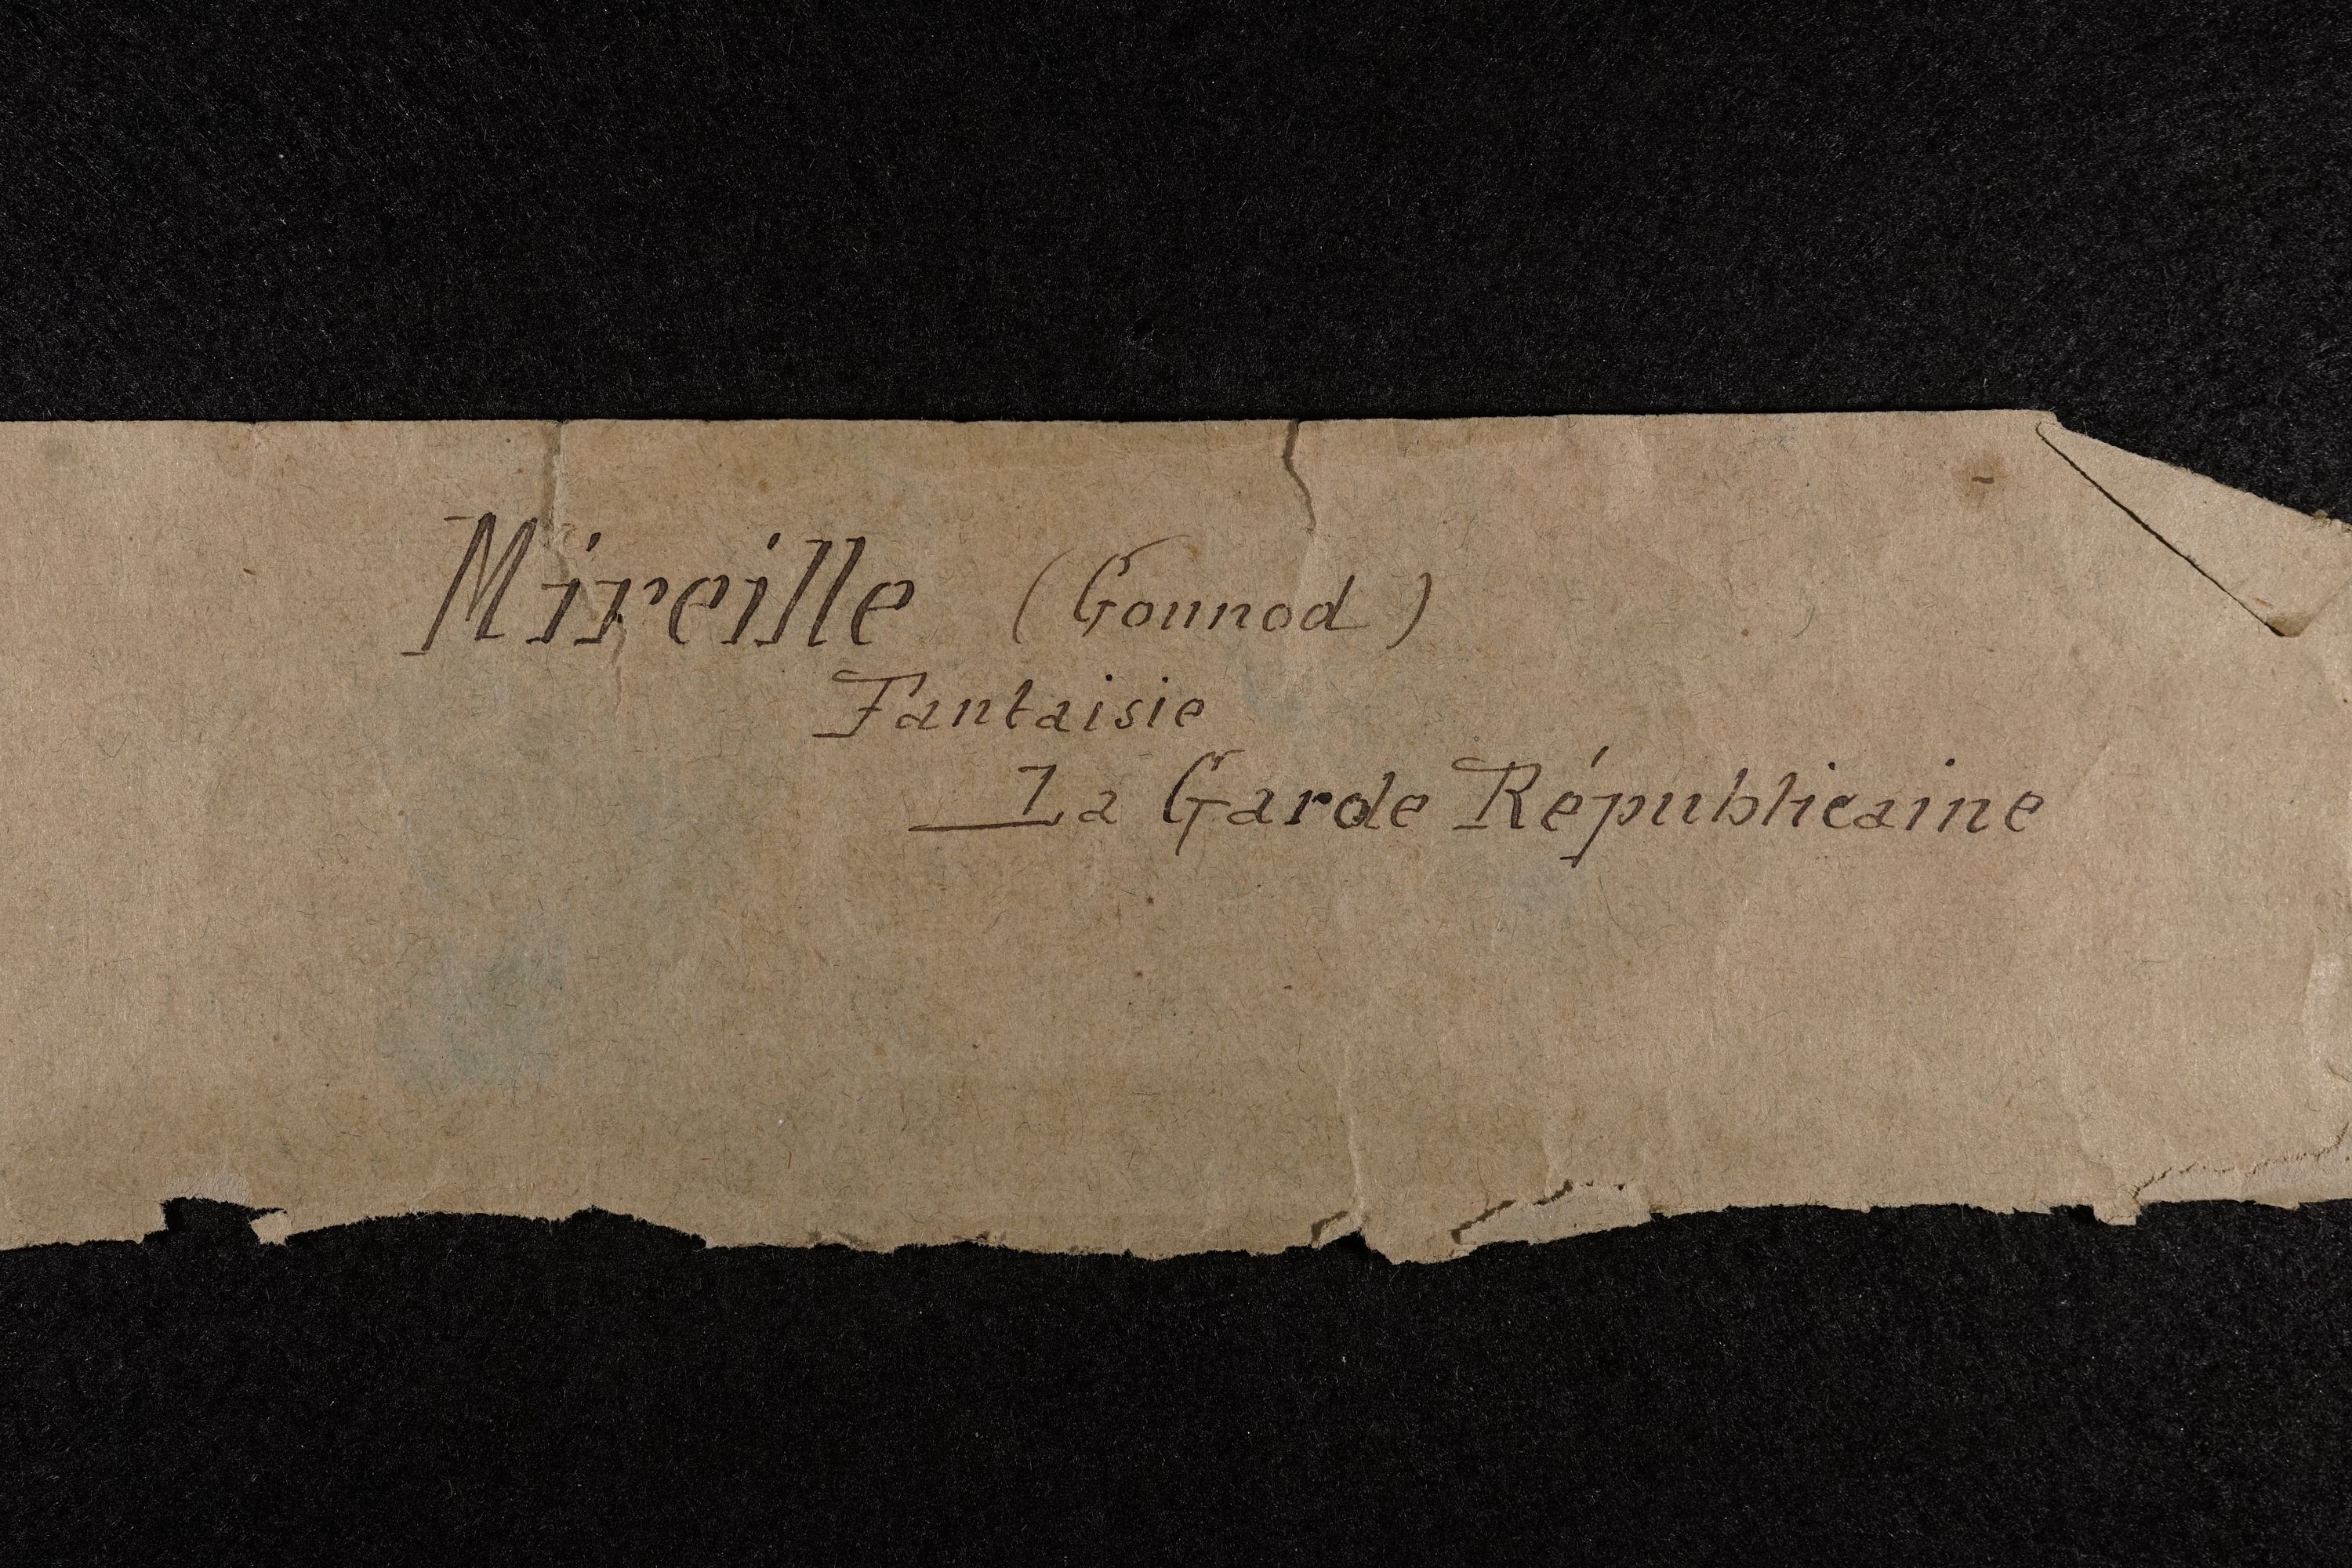 Mireille (Gounod)
Fantaisie
La Garde Républicaine